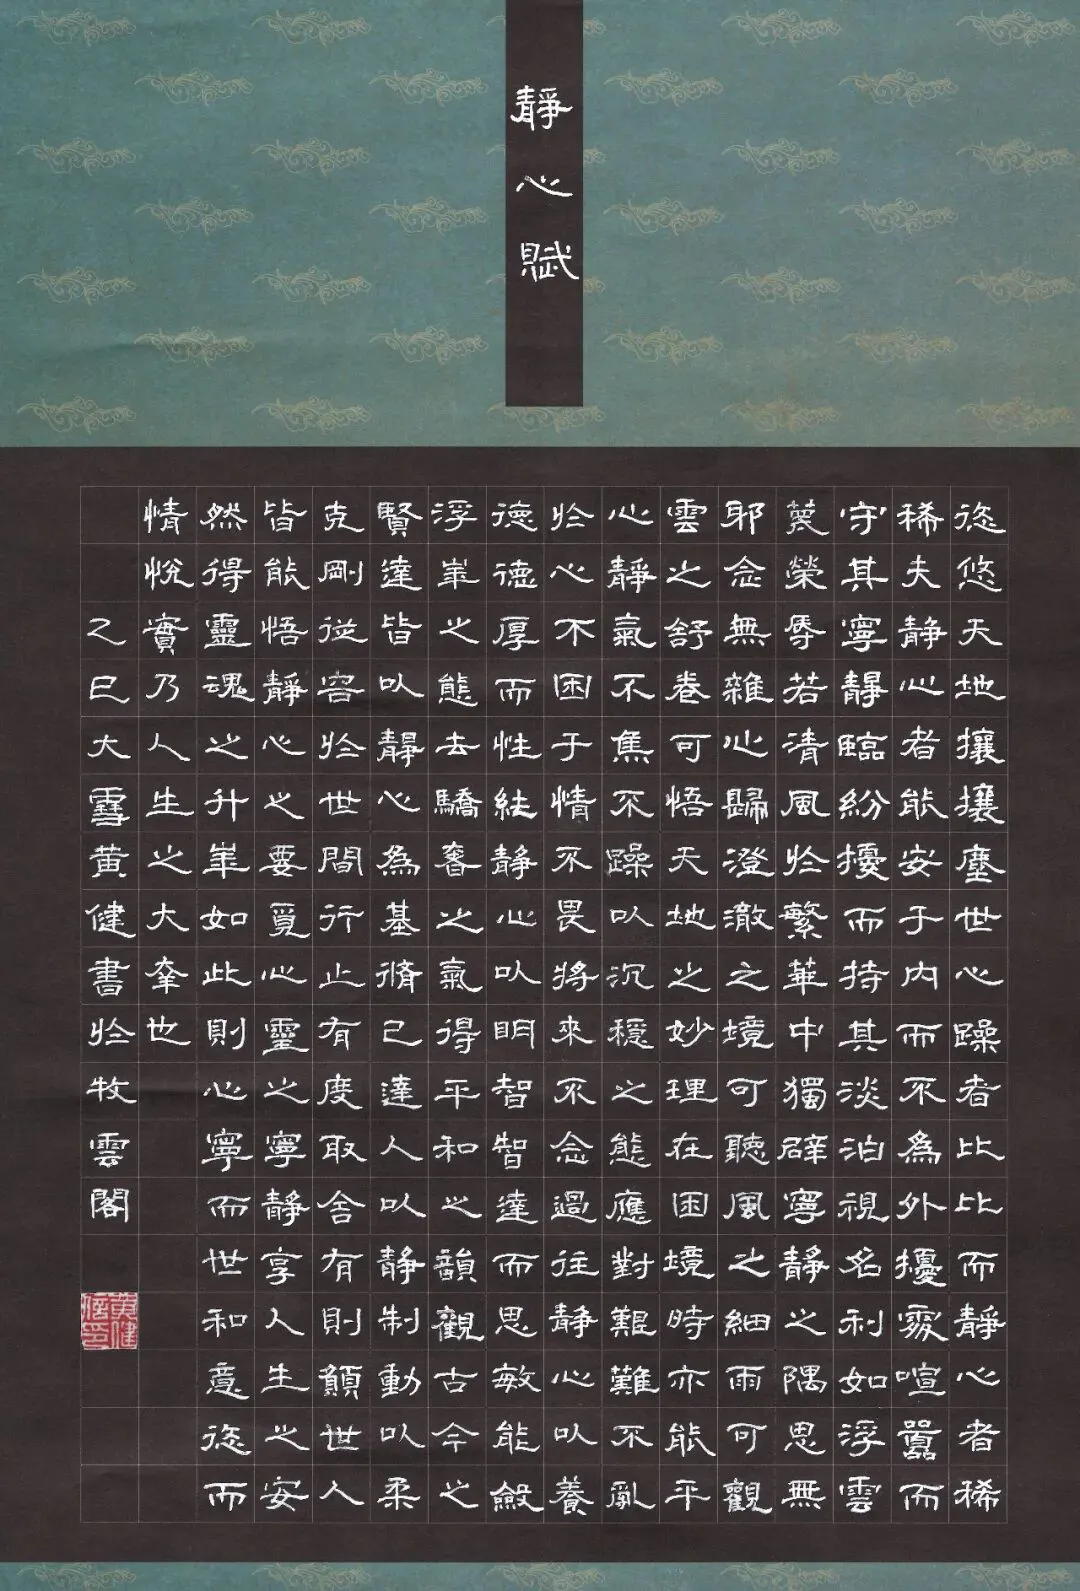 靜心賦
悠悠天地攘攘塵世心躁者比比而靜心者稀
稀夫靜心者能安于內而不為外擾處喧囂而
守其寧靜臨紛擾而持其淡泊視名利如浮雲
蔑榮辱若清風於繁華中獨辟寧靜之隅思無
邪念無雜心歸澄澈之境可聽風之細雨可觀
雲之舒卷可悟天地之妙理在困境時亦能平
心靜氣不焦不躁以沉穩之態應對艱難不亂
於心不困于情不畏將來不念過往靜心以養
德德厚而性純靜心以明智智達而思敏能斂
浮華之態去驕奢之氣得平和之韻觀古今之
賢達皆以靜心為基脩己達人以靜制動以柔
克剛從容於世間行止有度取舍有則願世人
皆能悟靜心之要覓心靈之寧靜享人生之安
然得靈魂之升華如此則心寧而世和意悠而
情悅實乃人生之大幸也
乙巳大雪黃健書於牧雲閣
黃健信印